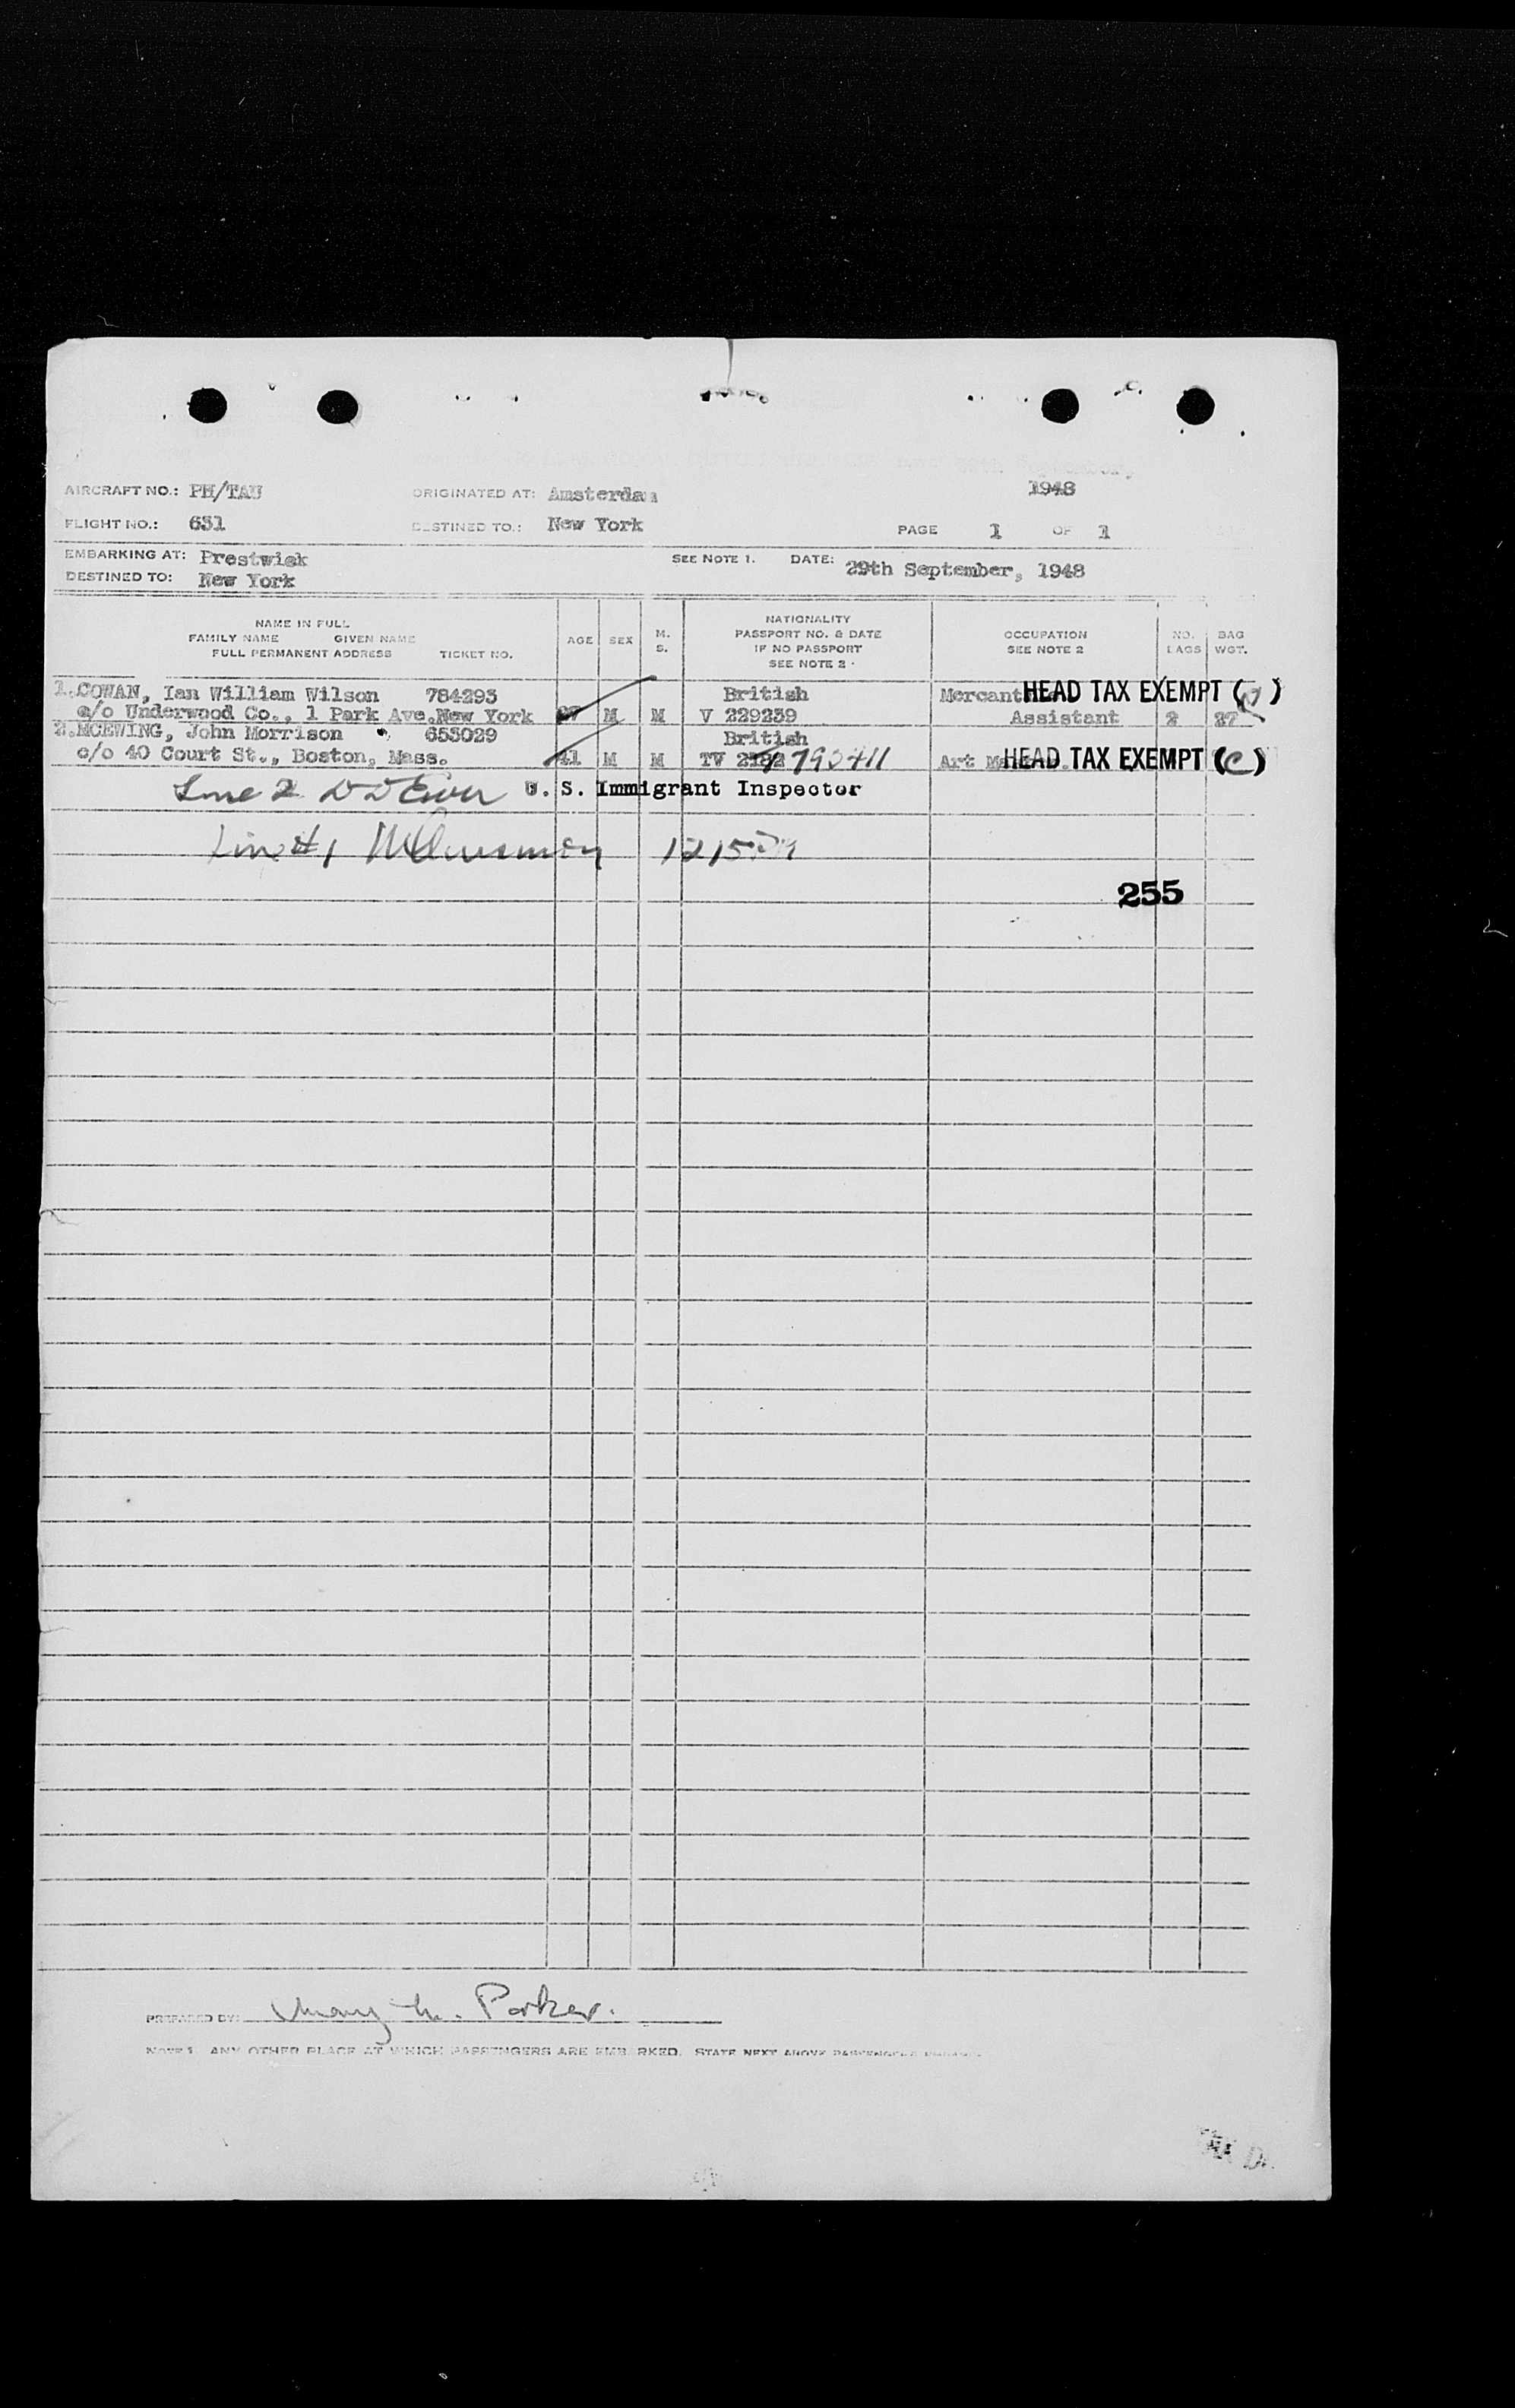 AIRCRAFT NO.: PH/TAU ORIGINATED AT: Amsterdam 1948
FLIGHT NO.: 631 DESTINED TO.: New York PAGE 1 OF 1
EMBARKING AT: Prestwick SEE NOTE 1. DATE: 29th September, 1948
DESTINED TO: New York
NAME IN FULL
FAMILY NAME GIVEN NAME
FULL PERMANENT ADDRESS TICKET NO.
AGE SEX M. S.
NATIONALITY
PASSPORT NO. & DATE
IF NO PASSPORT
SEE NOTE 2
OCCUPATION
SEE NOTE 2
NO. BAGS
BAG WGT.
1.COWAN, Ian William Wilson 784293 British Mercant HEAD TAX EXEMPT ( )
c/o Underwood Co., 1 Park Ave.New York M M V 229239 Assistant 2 27
2.MCEWING, John Morrison 653029 British
c/o 40 Court St., Boston, Mass. 41 M M TV 790411 Art HEAD TAX EXEMPT (C)
Line 2 U. S. Immigrant Inspector
Line #1 1215
255
PREPARED BY: Mary M. Parker.
NOTE 1 ANY OTHER PLACE AT WHICH PASSENGERS ARE EMBARKED. STATE NEXT ABOVE